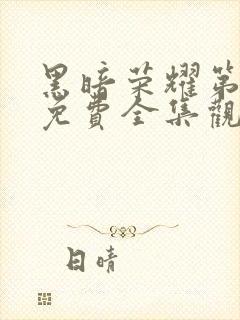 黑暗荣耀第
免費全集觀
日晴